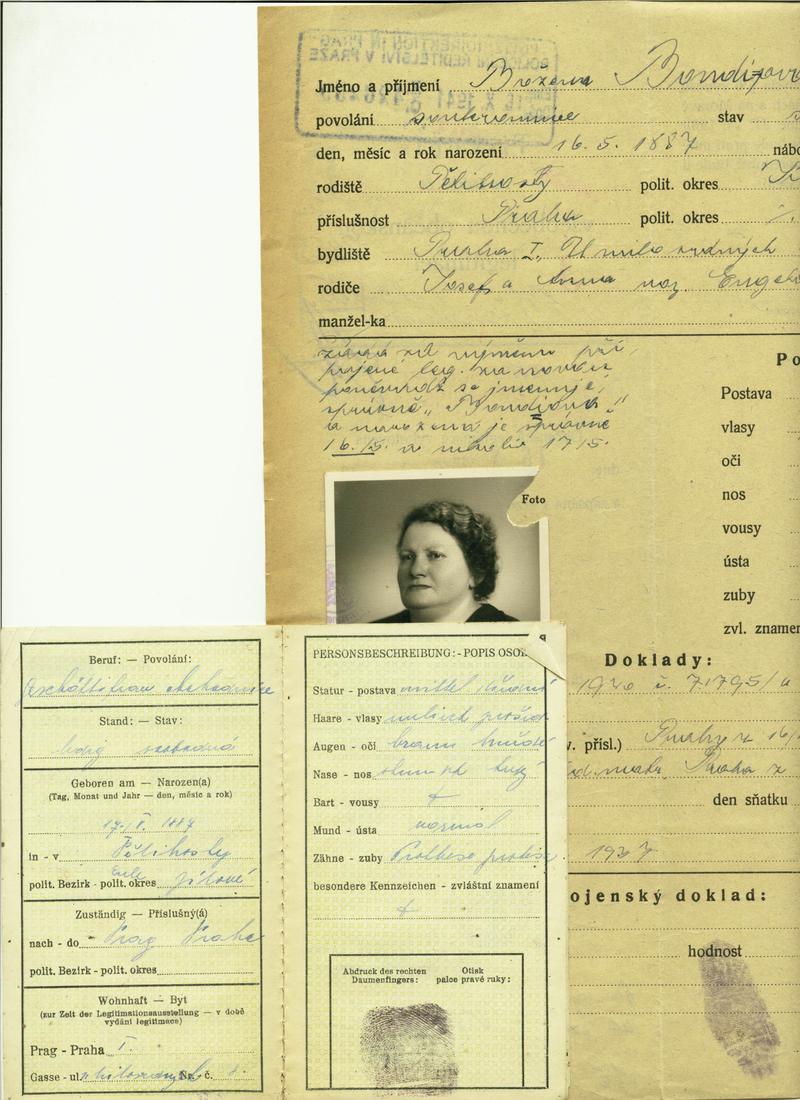 POLIZEIDIREKTION IN PRAG
POLICEJNÍ ŘEDITELSTVÍ V PRAZE
X. 1941
Jméno a příjmení Božena Bondizová
povolání soukromnice stav
den, měsíc a rok narození 16. 5. 1887 nábo
rodiště Pětihosty polit. okres
příslušnost Praha polit. okres
bydliště Praha I, U milosrdných
rodiče Josef a Anna roz. Engel
manžel-ka
žádá za výměnu při
pojené leg. za novou
poněvadž se jmenuje
správně „Bondiová"
a narozená je správně
16./5. a nikoliv 17/5.
Po
Postava
vlasy
oči
nos
vousy
ústa
zuby
zvl. znamen
Foto
Doklady:
1920 č. 71795/
v. přísl.) Prahy z 16/
matr. Praha z
den sňatku
1937
ojenský doklad:
hodnost
Beruf: — Povolání:
Geschäftsfrau obchodnice
Stand: — Stav:
ledig svobodná
Geboren am — Narozen(a)
(Tag, Monat und Jahr — den, měsíc a rok)
17. V. 1887
in - v Pětihosty
polit. Bezirk - polit. okres Eule Jílové
Zuständig — Příslušný(á)
nach - do Prag Praha
polit. Bezirk - polit. okres
Wohnhaft — Byt
(zur Zeit der Legitimationsausstellung — v době
vydání legitimace)
Prag - Praha I.
Gasse - ul. U milosrdných Nr. - č. 8.
PERSONSBESCHREIBUNG: - POPIS OSO
Statur - postava mittel střední
Haare - vlasy meliert prošed
Augen - oči braun hnědé
Nase - nos stumpf tupý
Bart - vousy +
Mund - ústa normal
Zähne - zuby Prothese protese
besondere Kennzeichen - zvláštní znamení
+
Abdruck des rechten Otisk
Daumenfingers: palce pravé ruky: